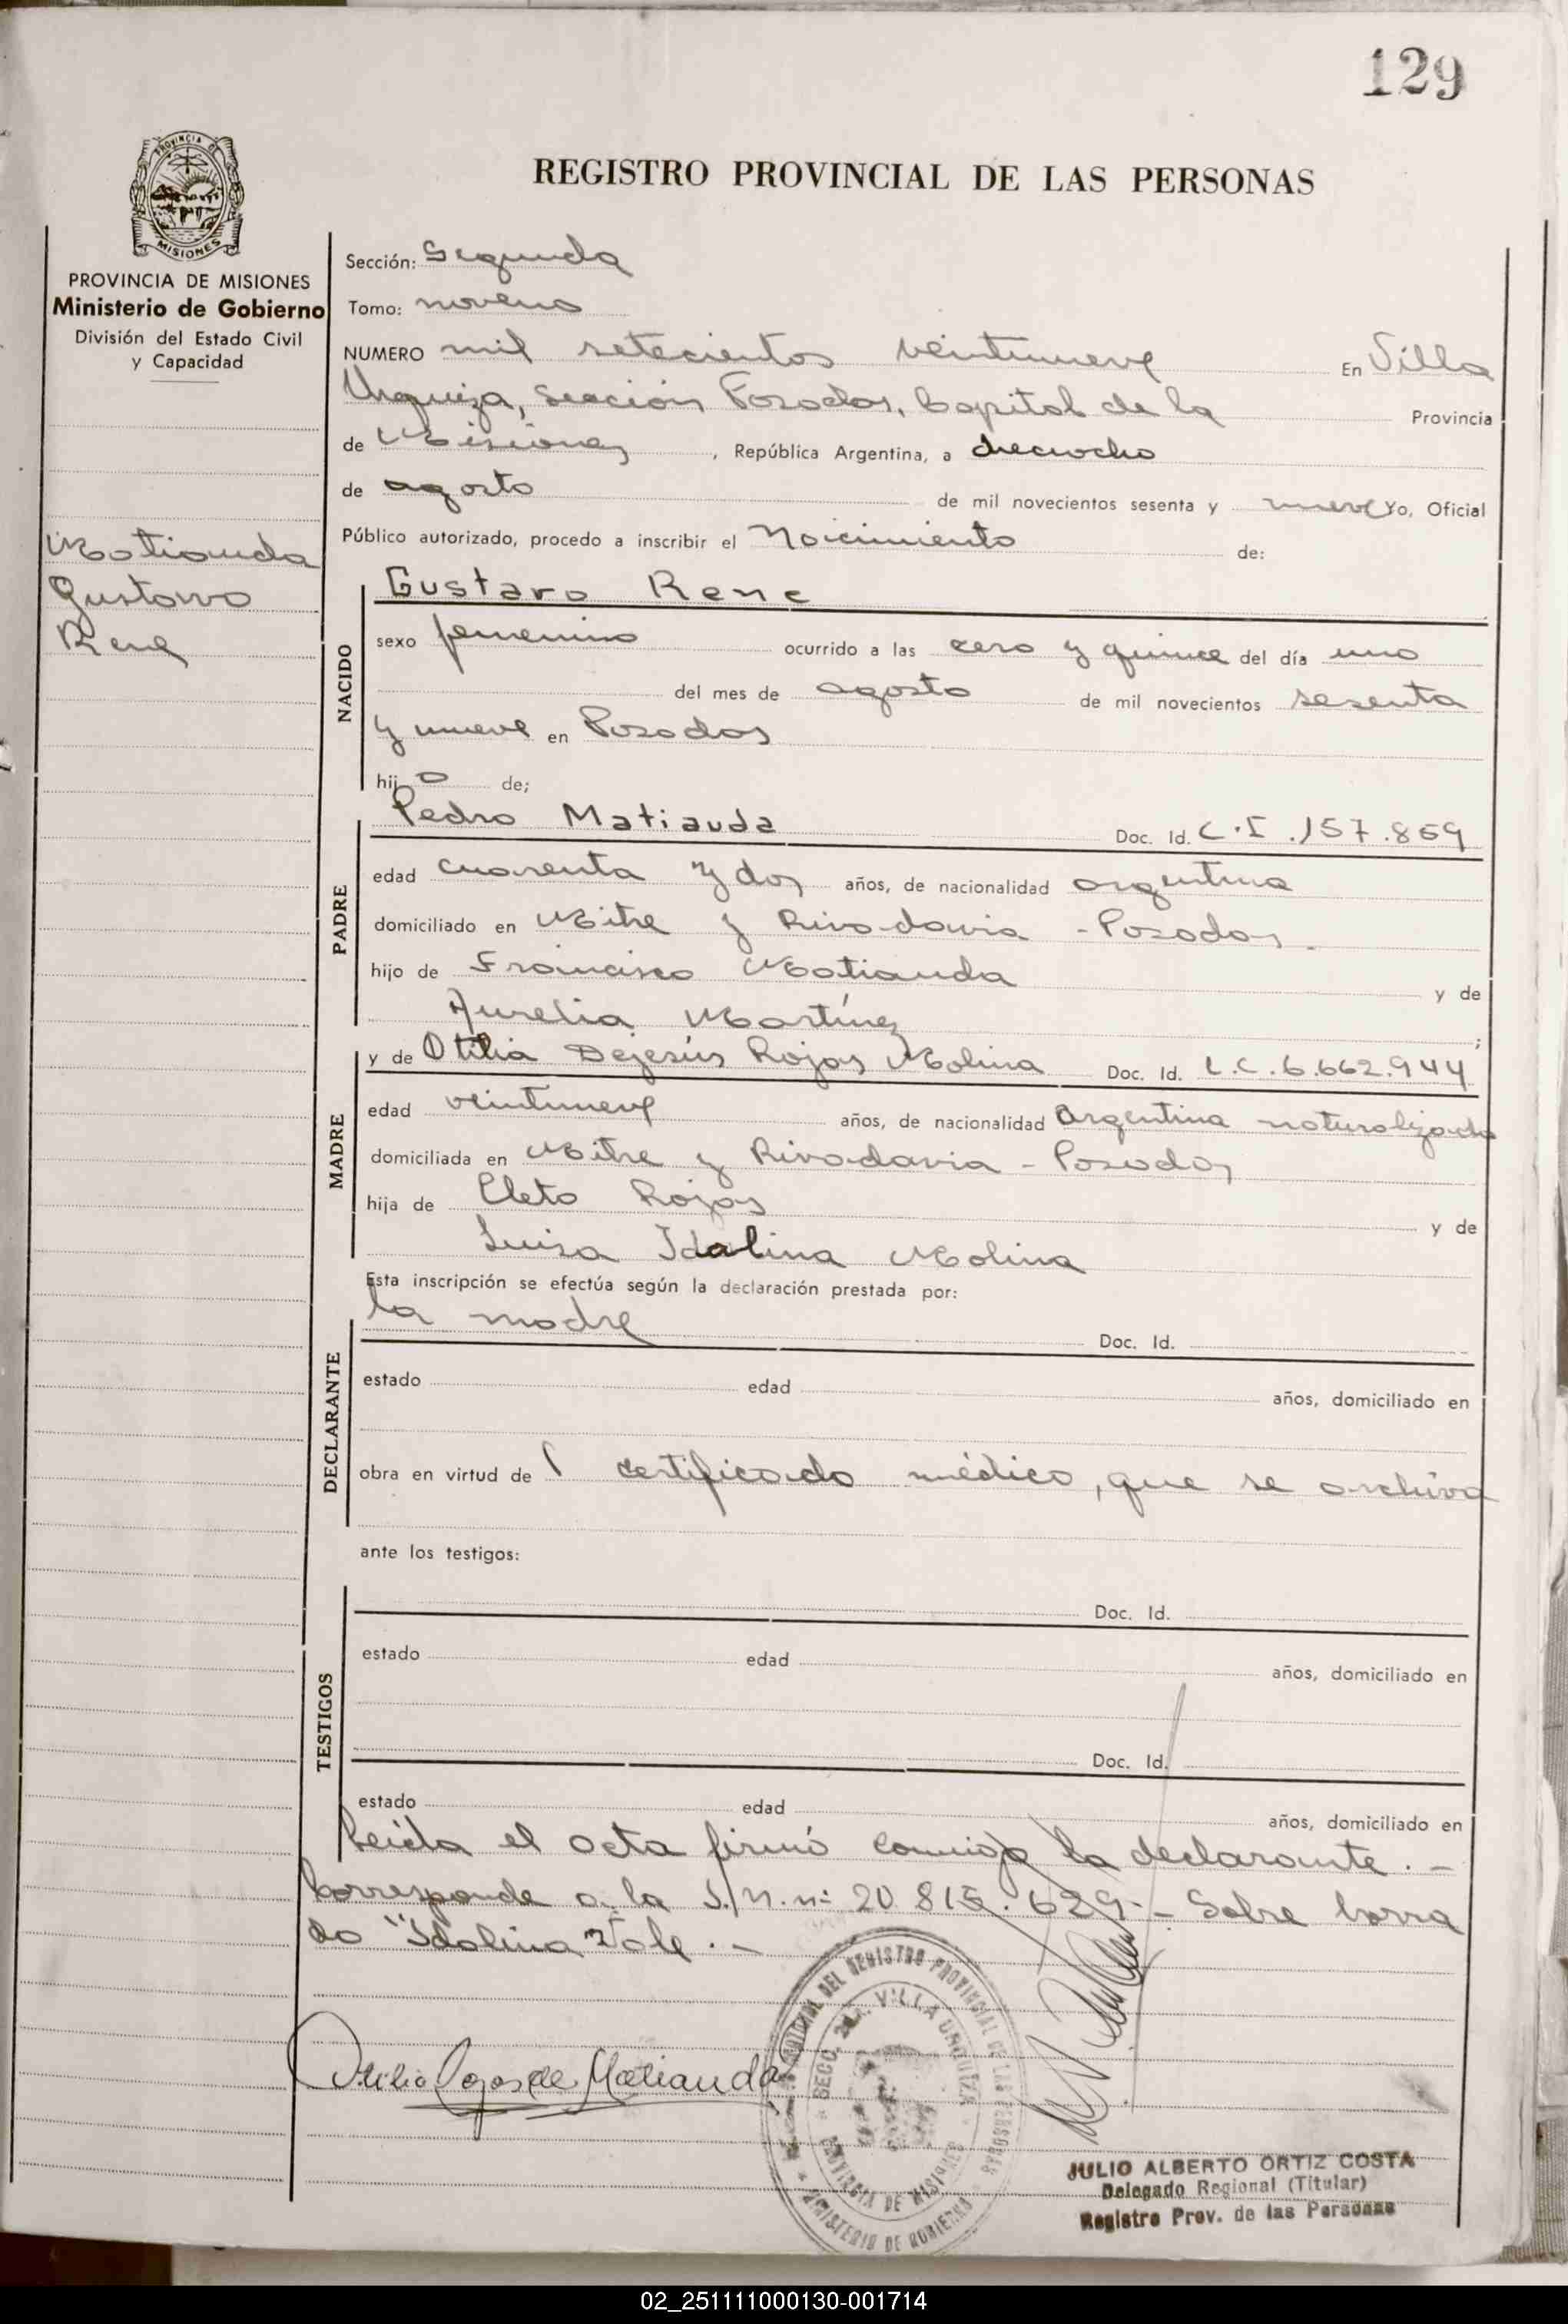 129
PROVINCIA DE
MISIONES
REGISTRO PROVINCIAL DE LAS PERSONAS
PROVINCIA DE MISIONES
Ministerio de Gobierno
División del Estado Civil
y Capacidad
Matiauda
Gustavo
Rene
Sección: Segunda
Tomo: noveno
NUMERO mil setecientos veintinueve En Villa
Urquiza, Sección Posadas, Capital de la Provincia
de Misiones, República Argentina, a dieciocho
de agosto de mil novecientos sesenta y nueve Yo, Oficial
Público autorizado, procedo a inscribir el Nacimiento de:
NACIDO
Gustavo Rene
sexo femenino ocurrido a las cero y quince del día uno
del mes de agosto de mil novecientos sesenta
y nueve en Posadas
hijo de;
PADRE
Pedro Matiauda Doc. Id. C.I.157.859
edad cuarenta y dos años, de nacionalidad argentina
domiciliado en Mitre y Rivadavia - Posadas.
hijo de Francisco Matiauda y de
Aurelia Martínez;
MADRE
y de Otilia Dejesús Rojas Molina Doc. Id. L.C.6.662.944
edad veintinueve años, de nacionalidad Argentina naturalizada
domiciliada en Mitre y Rivadavia - Posadas
hija de Cleto Rojas y de
Luisa Idalina Molina
Esta inscripción se efectúa según la declaración prestada por:
DECLARANTE
la madre Doc. Id.
estado edad años, domiciliado en
obra en virtud de l certificado médico, que se archiva
ante los testigos:
TESTIGOS
Doc. Id.
estado edad años, domiciliado en
Doc. Id.
estado edad años, domiciliado en
Leida el acta firmó conmigo la declarante. -
Corresponde a la I/n. nº 20.815.629 - Sobre borra
do "Idalina Vale. -
Otilia Rojas de Matiauda
DEL REGISTRO PROVINCIAL DE LAS PERSONAS
SECC. 2da. VILLA URQUIZA
PROVINCIA DE MISIONES
MINISTERIO DE GOBIERNO
JULIO ALBERTO ORTIZ COSTA
Delegado Regional (Titular)
Registro Prov. de las Personas
02_251111000130-001714